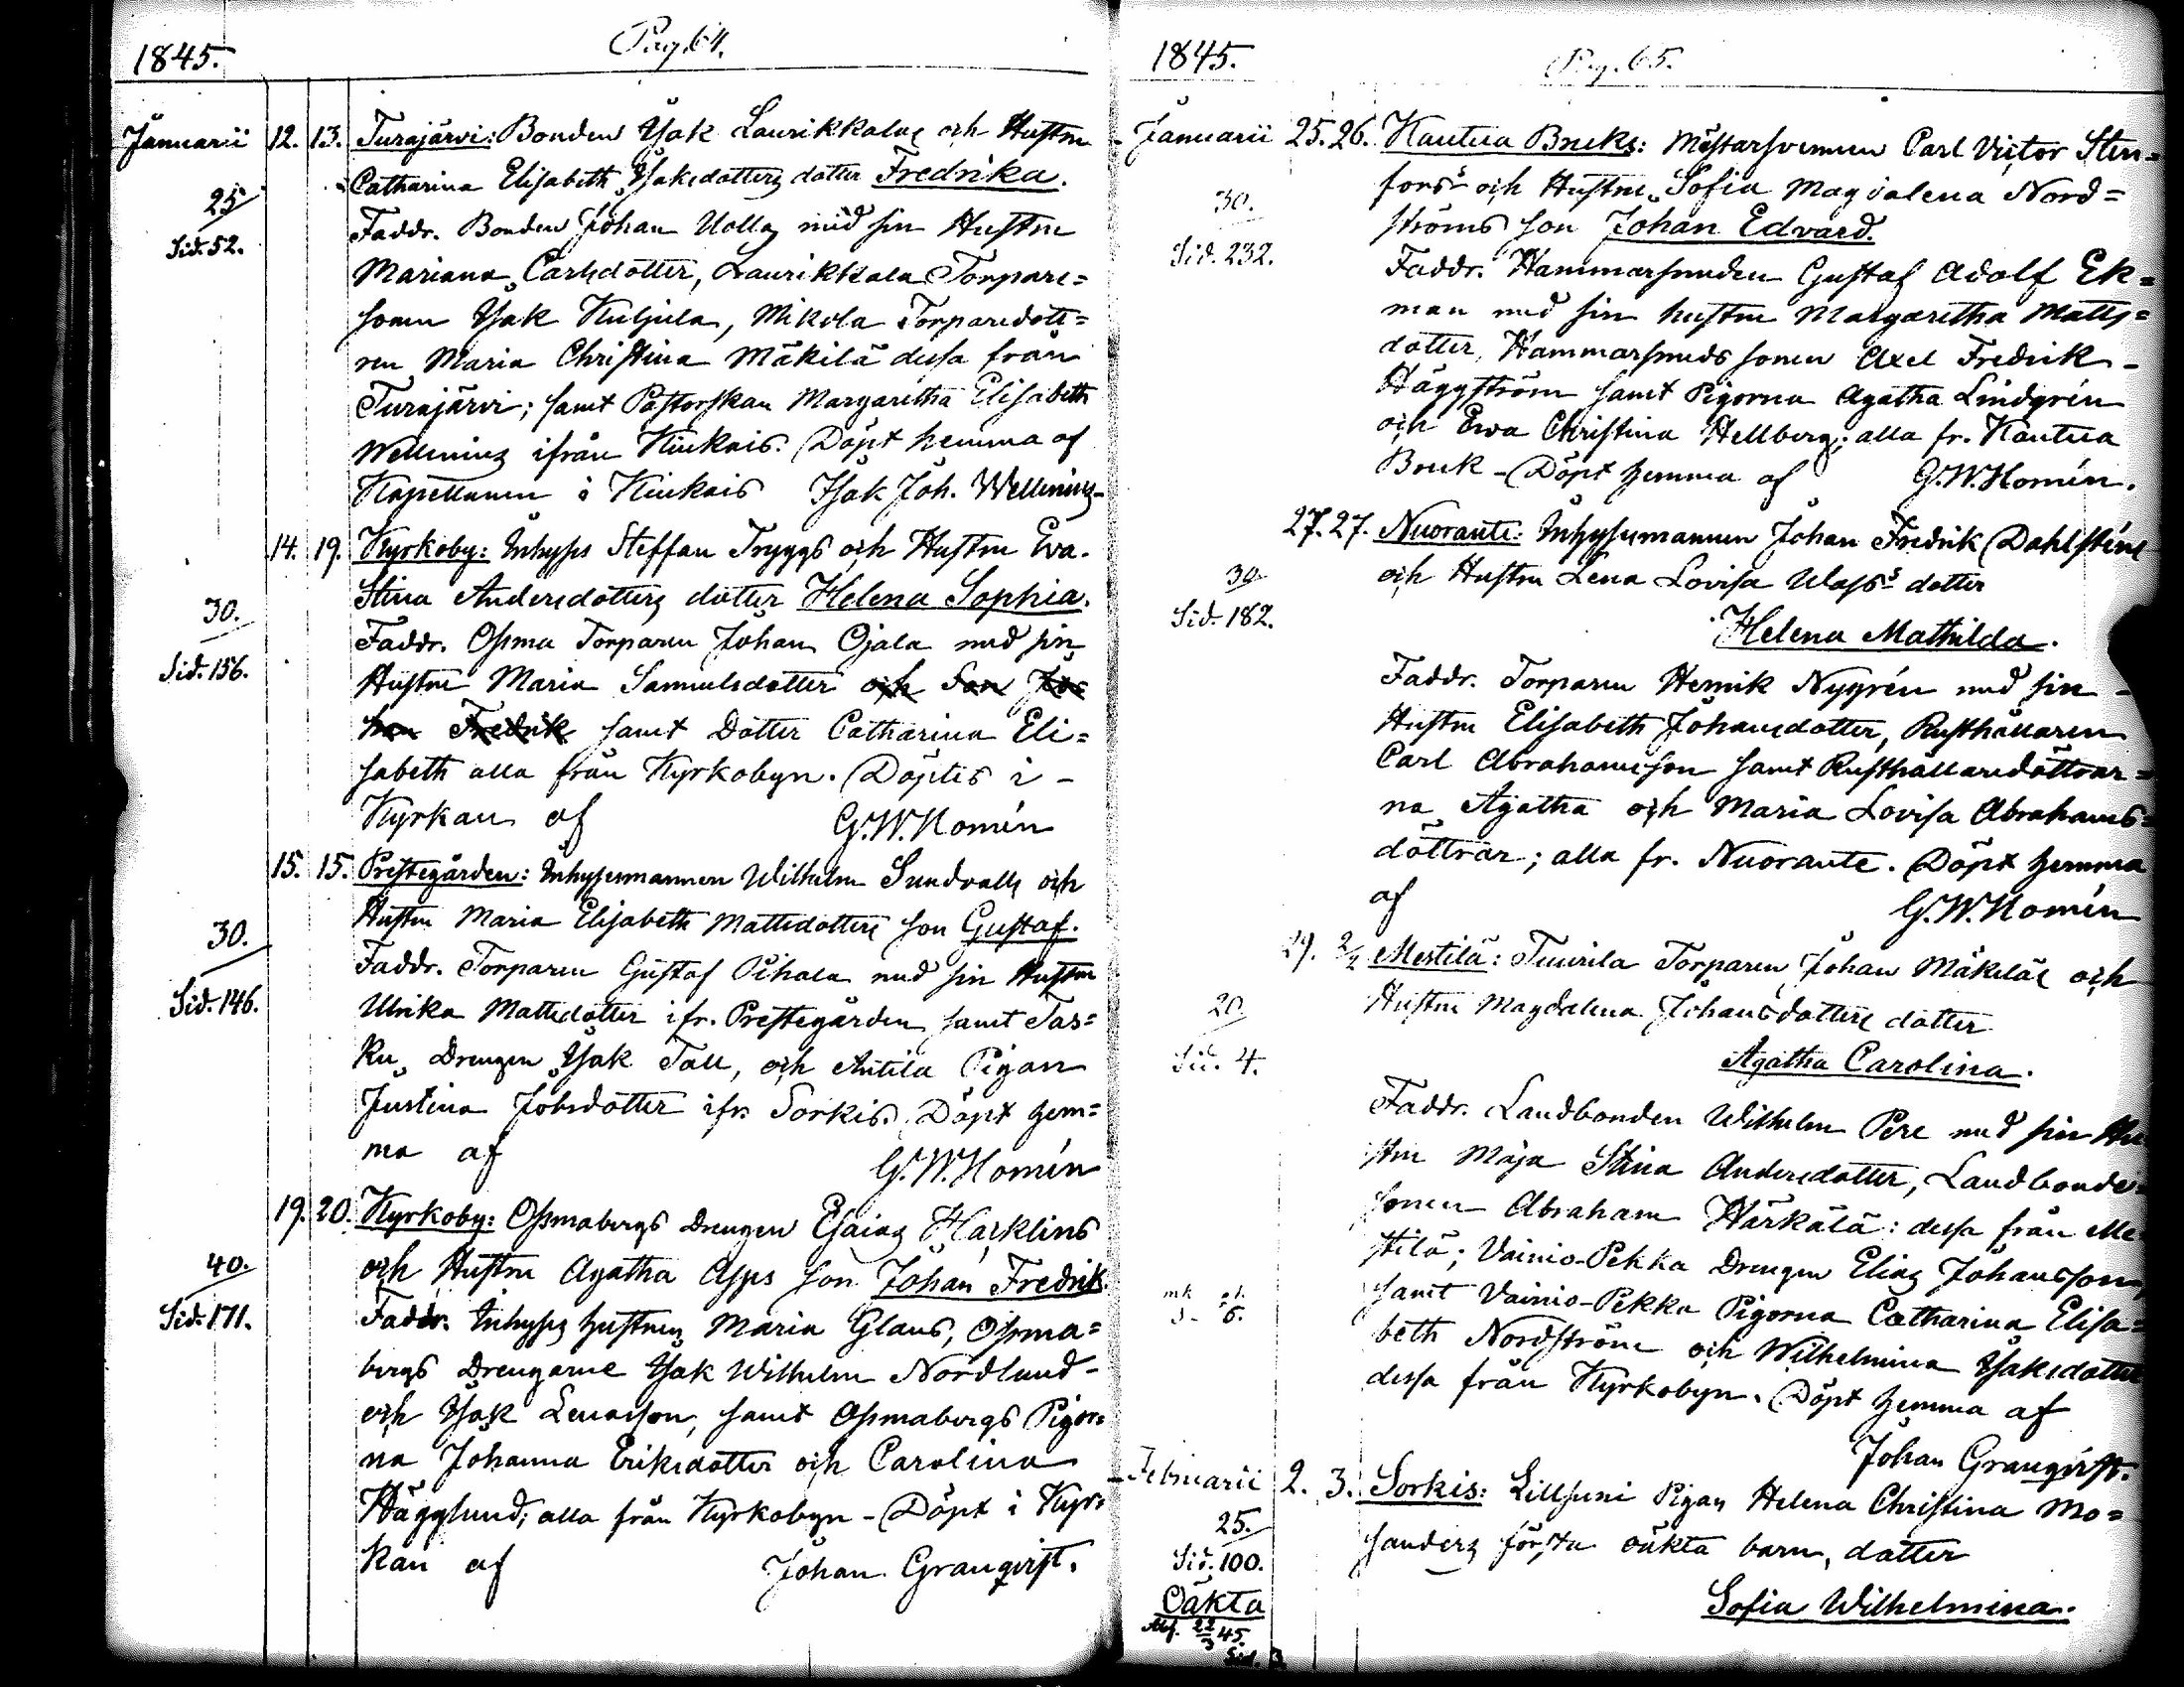 1845. Pag. 64.
Januarii 12. 13. Turajärvi: Bonden Isak Laurikkalas och Hustru
Catharina Elisabeth Isaksdotters dotter Fredrika.
25
Sid. 52.
Faddr. Bonden Johan Uolla med sin Hustru
Mariana Carlsdotter, Laurikkala Torpare=
sonen Isak Kuljula, Mikola Torparedott=
ren Maria Christina Mäkilä dessa från
Turajärvi; samt Pastorskan Margaretha Elisabeth
Wellenius ifrån Kiukais. Döpt hemma af
Kapellanen i Kiukais Isak Joh. Wellenius
14. 19. Kyrkoby: Inhyses Steffan Tryggs och Hustru Eva
Stina Andersdotters dotter Helena Sophia.
30.
Sid. 156.
Faddr. Ossma Torparen Johan Ojala med sin
Hustru Maria Samuelsdotter och Son Jo
han Fredrik samt Dotter Catharina Eli=
sabeth alla från Kyrkobyn. Döptes i
Kyrkan af G.W.Homén
15. 15. Prestegården: Inhysesmannen Wilhelm Sundvalls och
Hustru Maria Elisabeth Mattsdotters son Gustaf.
30.
Sid. 146.
Faddr. Torparen Gustaf Pihala med sin Hustru
Ulrika Mattsdotter ifr. Prestegården samt Tas=
ku Drengen Isak Tall, och Antila Pigan
Justina Jobsdotter ifr. Sorkis. Döpt hem=
ma af G.W.Homén
19. 20. Kyrkoby: Ossmabergs Drengen Esaias Hacklins
och Hustru Agatha Asps son Johan Fredrik.
40.
Sid. 171.
Faddr. Inhyses hustrun Maria Glans, Ossma=
bergs Drengarne Isak Wilhelm Nordlund
och Isak Lenasson, samt Ossmabergs Pigor=
na Johanna Eriksdotter och Carolina
Hägglund; alla från Kyrkobyn - Döpt i Kyr=
kan af Johan Granqvist.
1845. Pag. 65.
Januarii 25. 26. Kautua Bruks: Mästarsvennen Carl Victor Sten=
fors och Hustru Sofia Magdalena Nord=
ströms son Johan Edvard.
30.
Sid. 232.
Faddr. Hammarsmeden Gustaf Adolf Ek=
man med sin hustru Margaretha Matts=
dotter, Hammarsmeds sonen Axel Fredrik
Häggström samt Pigorna Agatha Lindgrén
och Ewa Christina Hellberg; alla fr. Kautua
Bruk - Döpt hemma af G.W.Homén.
27. 27. Nuorante: Inhysesmannen Johan Fredrik Dahlsténs
och Hustru Lena Lovisa Wass's dotter
Helena Mathilda.
30.
Sid. 182.
Faddr. Torparen Henrik Nygrén med sin
Hustru Elisabeth Johansdotter, Rusthållaren
Carl Abrahamsson samt Rusthållaredöttrar=
na Agatha och Maria Lovisa Abrahams=
döttrar; alla fr. Nuorante. Döpt hemma
af G.W.Homén
29. 2/2 Mestilä: Tuurila Torparen Johan Mäkiläs och
Hustru Magdalena Johansdotters dotter
Agatha Carolina.
20.
Sid. 4.
Faddr. Landbonden Wilhelm Pere med sin Hu
stru Maja Stina Andersdotter, Landbonde
sonen Abraham Härkälä: dessa från Me
stilä; Vainio-Pekka Drengen Elias Johansson,
samt Vainio-Pekka Pigorna Catharina Elisa=
beth Nordström och Wilhelmina Isaksdotter
dessa från Kyrkobyn. Döpt hemma af
Johan Granqvist.
Februarii 2. 3. Sorkis: Lillsuni Pigan Helena Christina Mo=
sanders första oäkta barn, dotter
Sofia Wilhelmina.
25.
Sid. 100.
Oäkta
22/3 45.